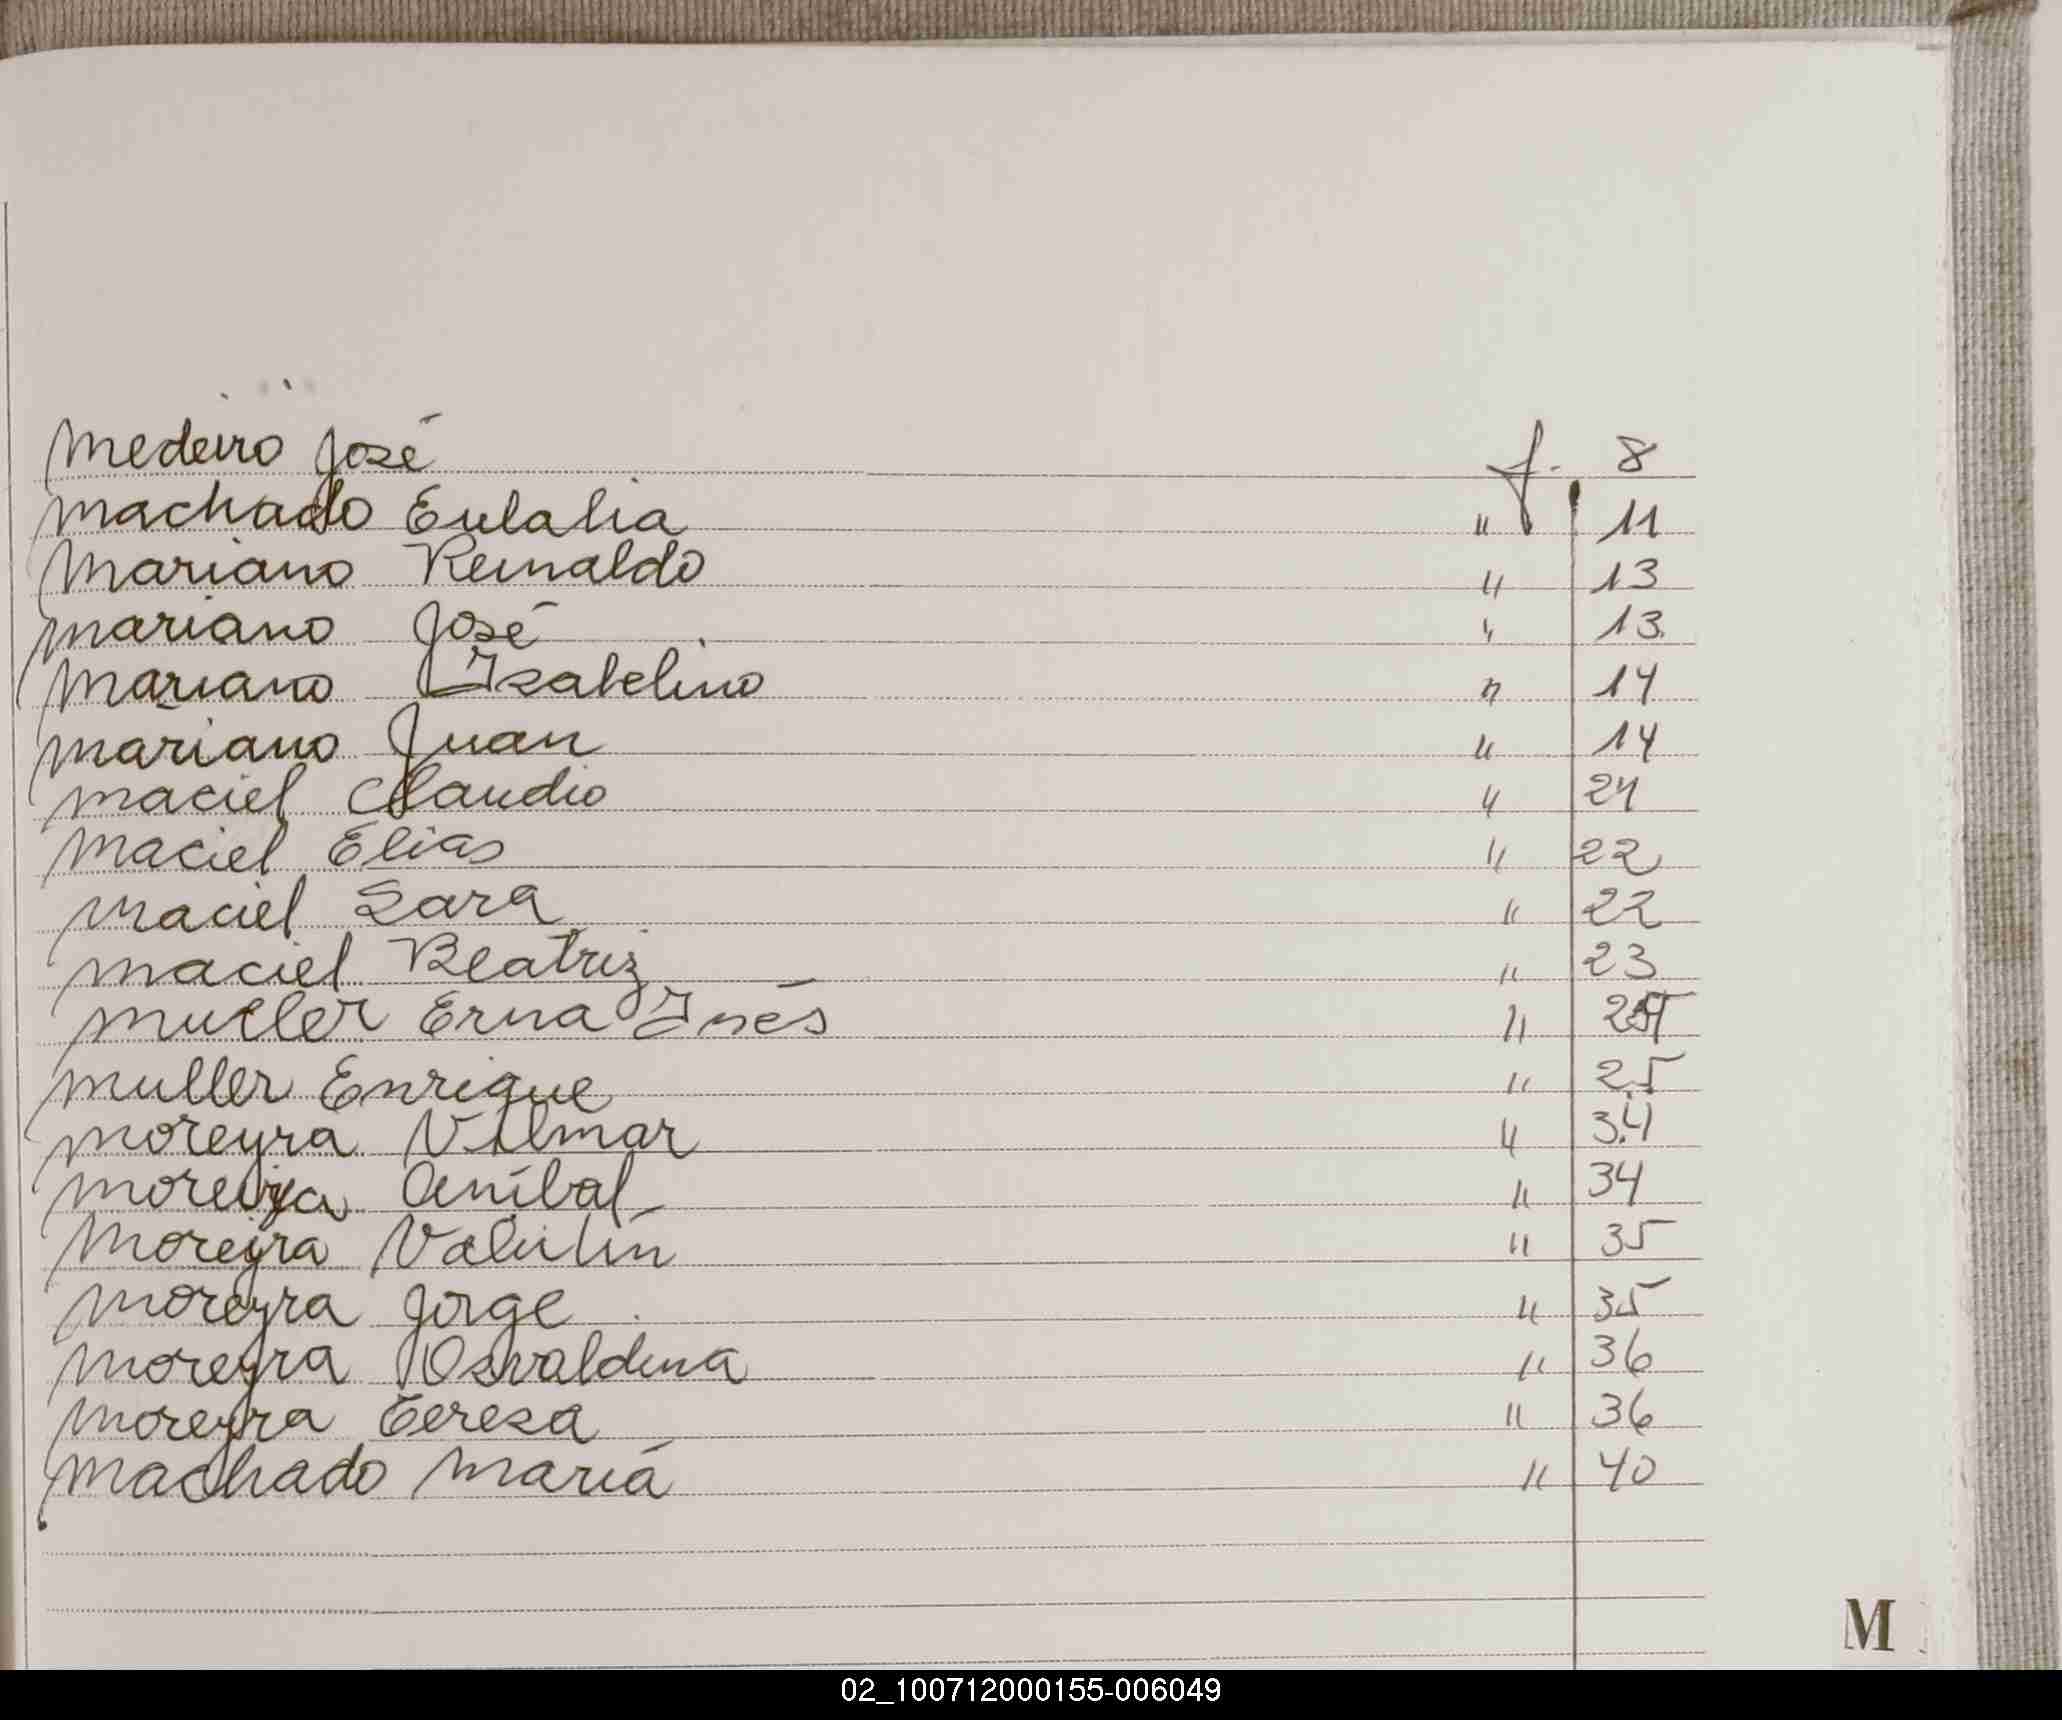 Medeiro José f. 8
Machado Eulalia " 11
Mariano Reinaldo " 13
Mariano José " 13
Mariano Isabelino " 14
Mariano Juan " 14
Maciel Claudio "
Maciel Elias " 22
Maciel Sara " 22
Maciel Beatriz " 23
Muller Erna Inés "
Muller Enrique " 25
Moreyra Vilmar " 34
Moreyra Aníbal " 34
Moreyra Valentín " 35
Moreyra Jorge " 35
Moreyra Osvaldina " 36
Moreyra Teresa " 36
Machado María " 40
M
02_100712000155-006049